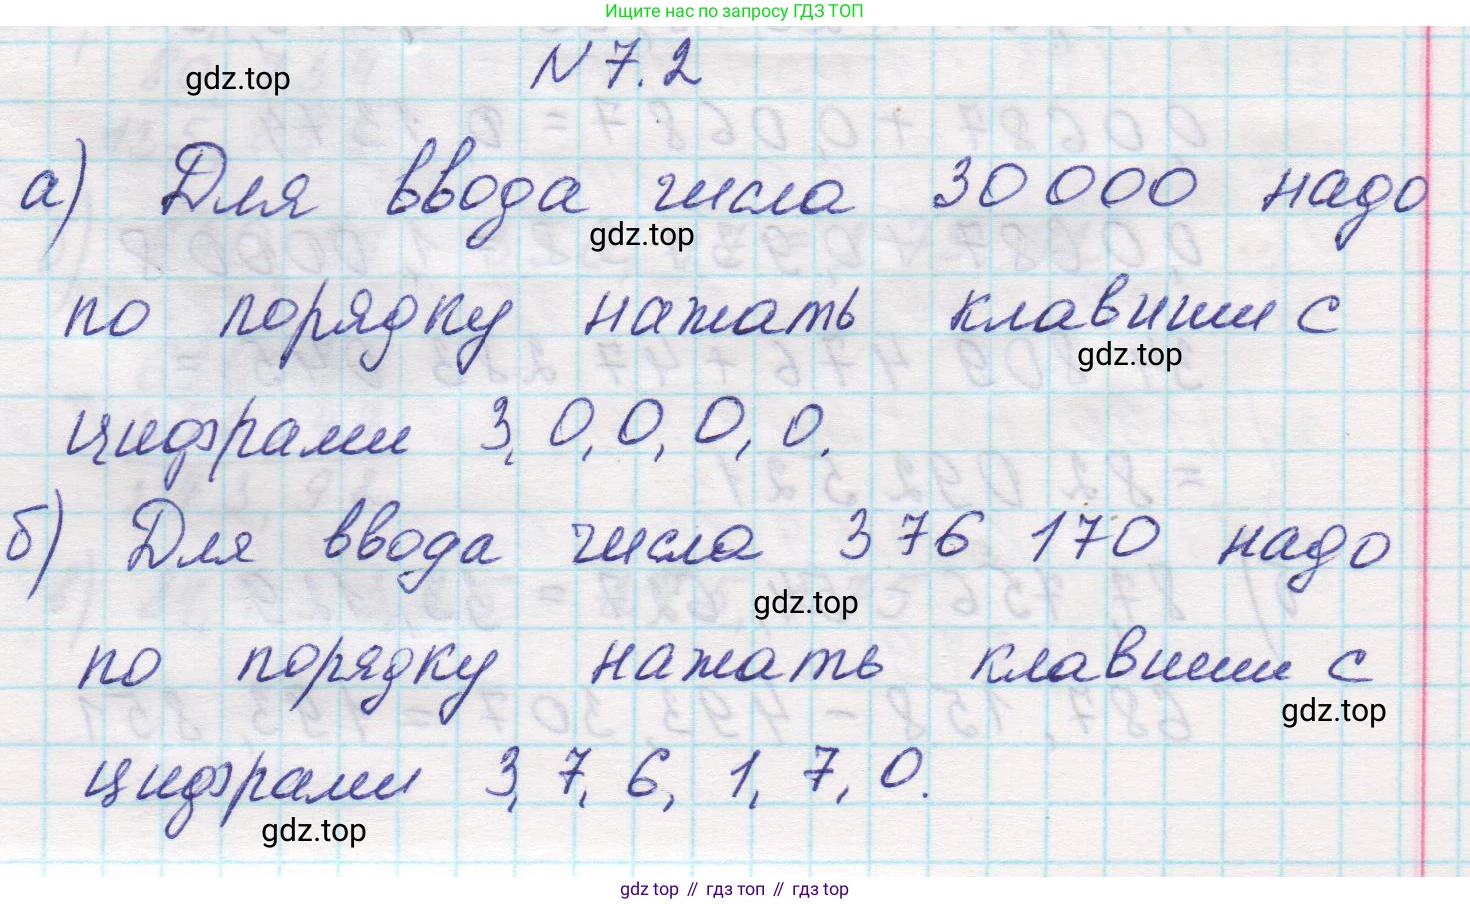 Ищите нас по запросу ГДЗ ТОП
N 7.2
gdz.top
а) Для ввода числа 30 000 надо
gdz.top
по порядку нажать клавиши с
gdz.top
цифрами 3, 0, 0, 0, 0.
б) Для ввода числа 376 170 надо
gdz.top
по порядку нажать клавиши с
gdz.top
цифрами 3, 7, 6, 1, 7, 0.
gdz.top
gdz top // гдз топ // гдз top